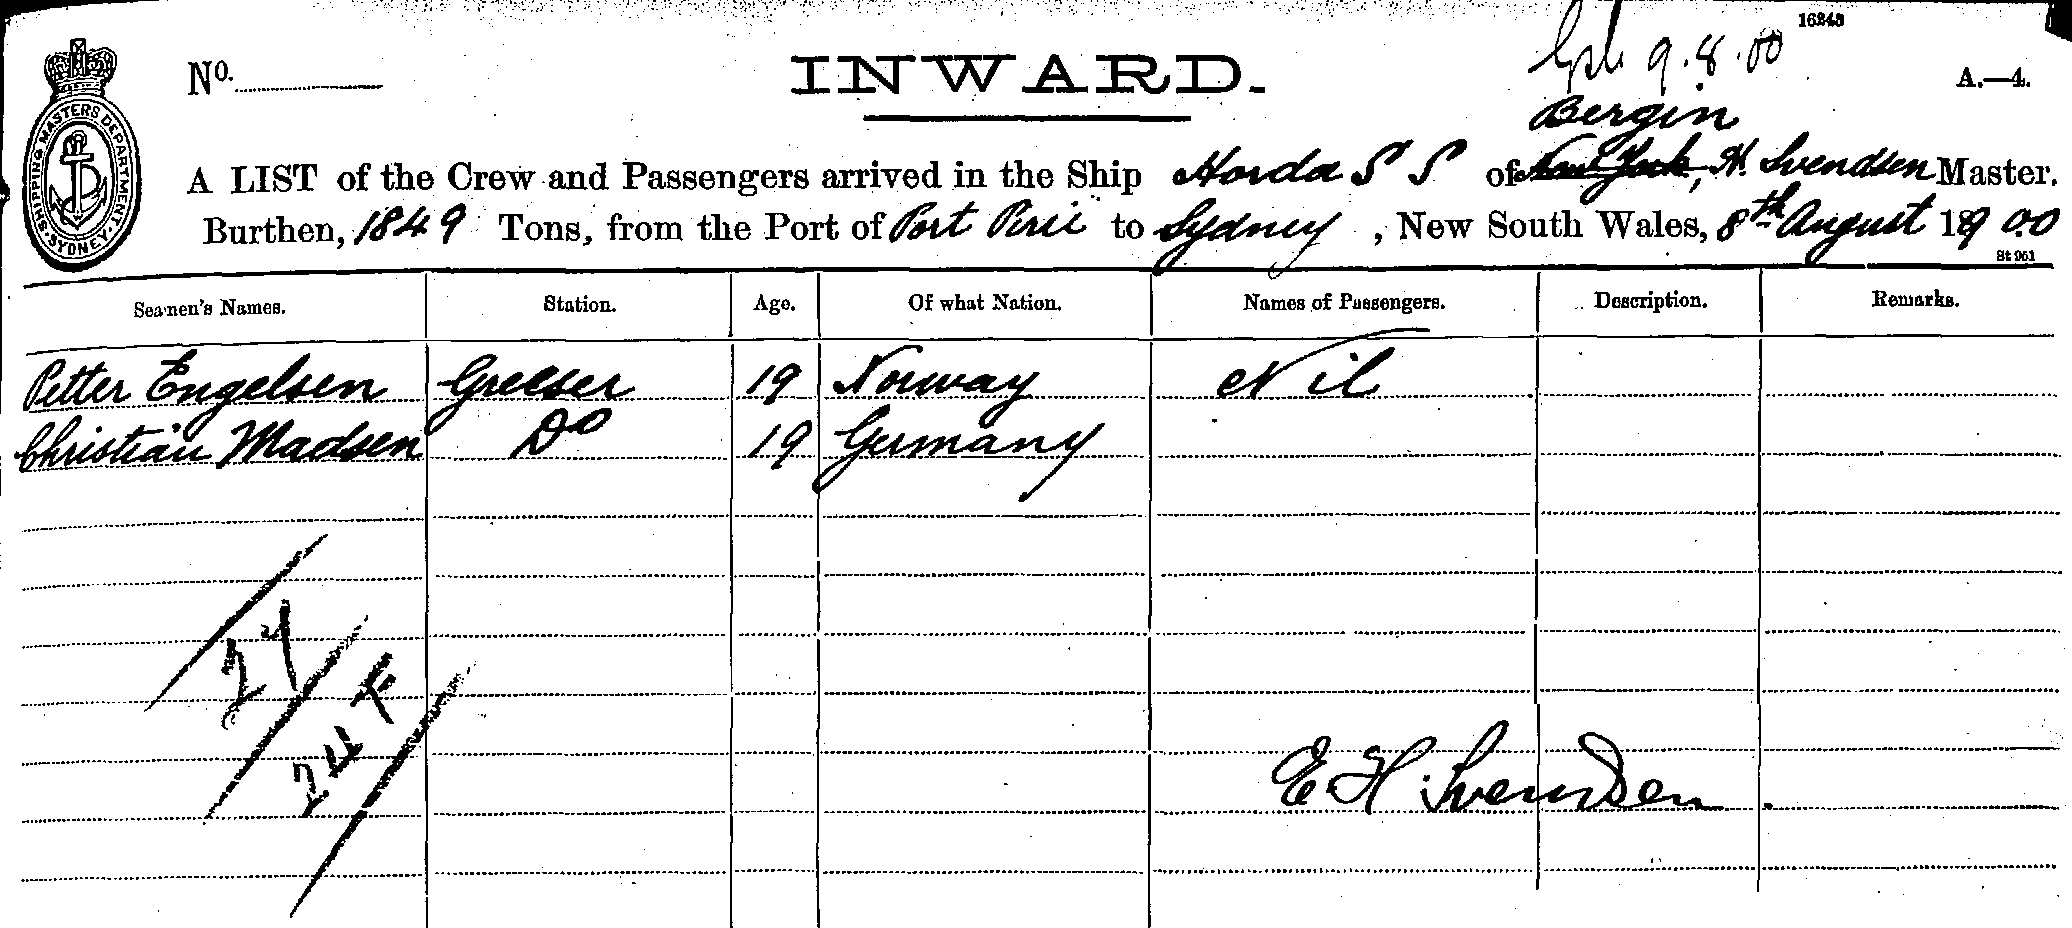 16240
9.8.00
No.
INWARD.
A.—4.
Bergin
SHIPPING MASTERS DEPARTMENT SYDNEY
A LIST of the Crew and Passengers arrived in the Ship Horda S S of New York, H. Svendsen Master.
Burthen, 1849 Tons, from the Port of Port Pirie to Sydney, New South Wales, 8th August 1900
St 951
Seamen's Names. Station. Age. Of what Nation. Names of Passengers. Description. Remarks.
Petter Engelsen Greeser 19 Norway Nil
Christian Madsen Do 19 Germany
27
24 F
E H Svendsen